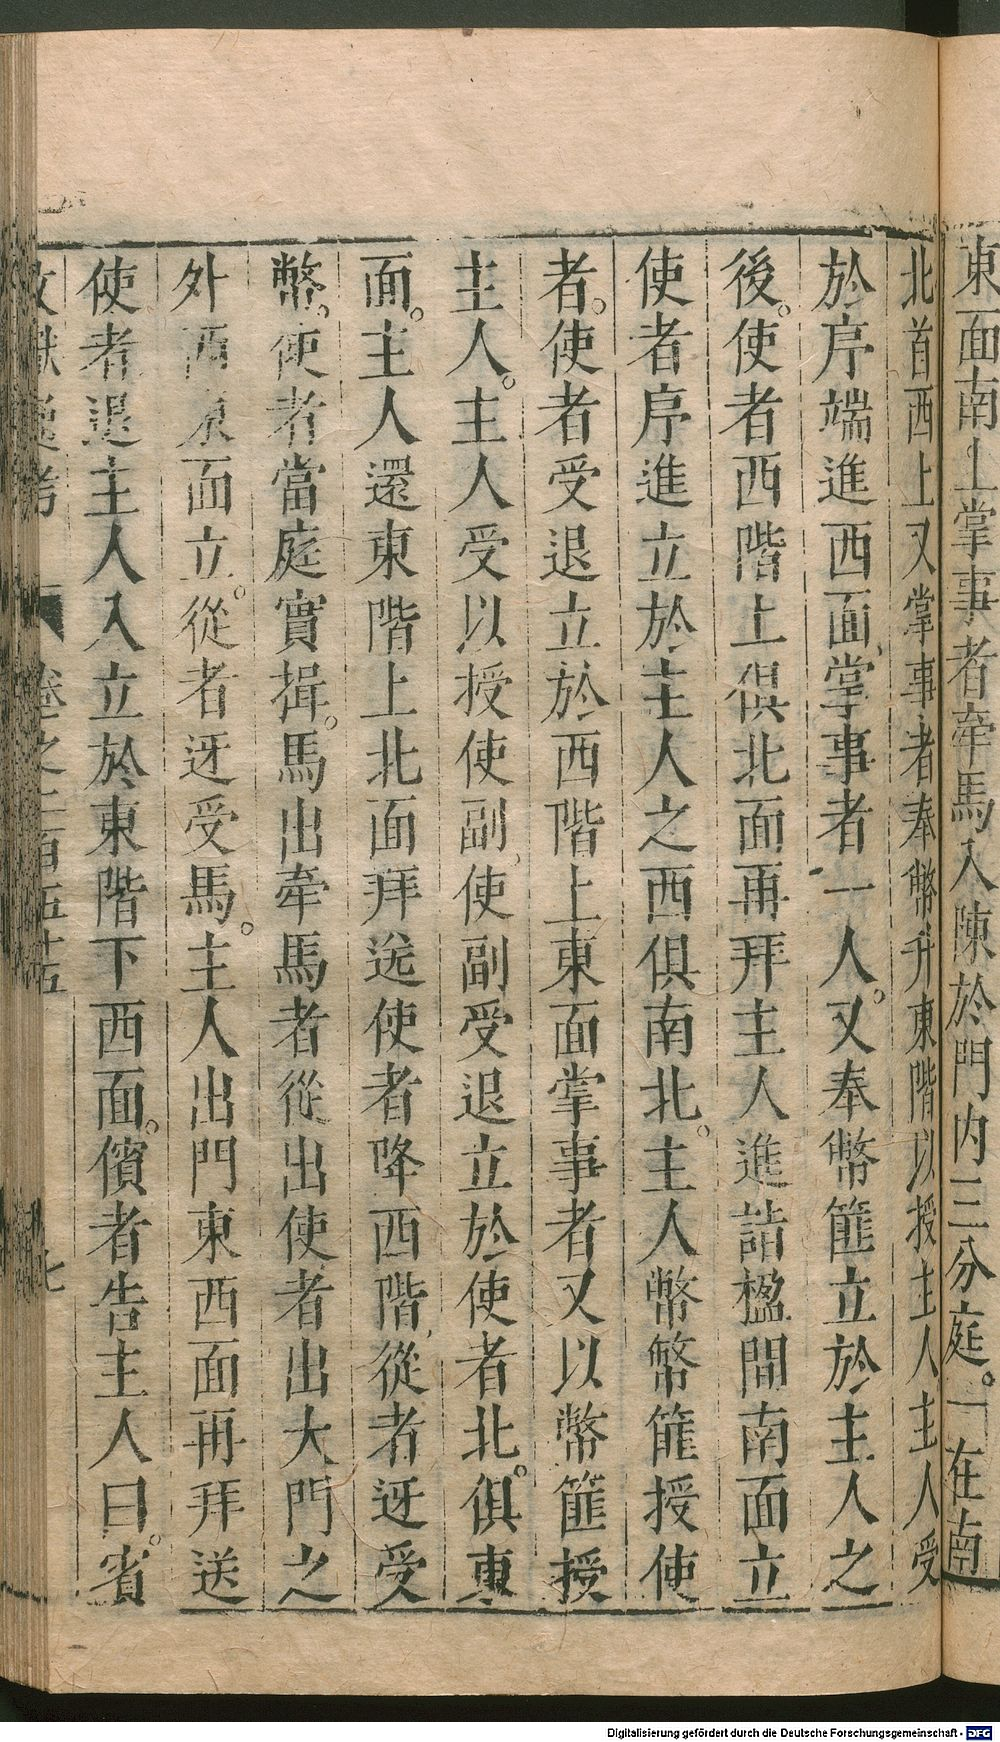 東面南上掌事者牽馬入陳於門內三分庭。一在南
北首西上又掌事者奉幣升東階以授主人主人受
於序端進西面掌事者一人。又奉幣篚立於主人之
後。使者西階上俱北面再拜主人進詣楹間南面立
使者序進立於主人之西俱南北。主人幣幣篚授使
者。使者受退立於西階上東面掌事者又以幣篚授
主人。主人受以授使副使副受退立於使者北。俱東
面。主人還東階上北面拜送使者降西階從者迓受
幣。使者當庭實揖。馬出牽馬者從出使者出大門之
外西東面立。從者迓受馬。主人出門東西面再拜送
使者退主人入立於東階下西面。儐者告主人曰。賓
文獻通考 卷之二百五十五 七
Digitalisierung gefördert durch die Deutsche Forschungsgemeinschaft - DFG